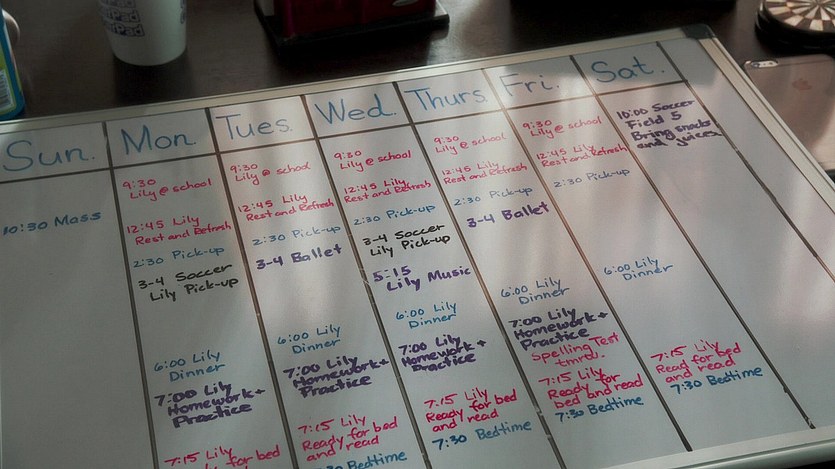 Sun.
Mon.
Tues.
Wed.
Thurs.
Fri.
Sat.
10:30 Mass
9:30
Lily @ school
12:45 Lily
Rest and Refresh
2:30 Pick-up
3-4 Soccer
Lily Pick-up
6:00 Lily
Dinner
7:00 Lily
Homework +
Practice
7:15 Lily
for bed
9:30
Lily @ school
12:45 Lily
Rest and Refresh
2:30 Pick-up
3-4 Ballet
6:00 Lily
Dinner
7:00 Lily
Homework +
Practice
7:15 Lily
Ready for bed
and read
Bedtime
9:30
Lily @ school
12:45 Lily
Rest and Refresh
2:30 Pick-up
3-4 Soccer
Lily Pick-up
5:15
Lily Music
6:00 Lily
Dinner
7:00 Lily
Homework +
Practice
7:15 Lily
Ready for bed
and read
7:30 Bedtime
9:30
Lily @ school
12:45 Lily
Rest and Refresh
2:30 Pick-up
3-4 Ballet
6:00 Lily
Dinner
7:00 Lily
Homework +
Practice
Spelling Test
tmrd.
7:15 Lily
Ready for
bed and read
7:30 Bedtime
9:30
Lily @ school
12:45 Lily
Rest and Refresh
2:30 Pick-up
6:00 Lily
Dinner
7:15 Lily
Ready for bed
and read
7:30 Bedtime
10:00 Soccer
Field 5
Bring snacks
and juices